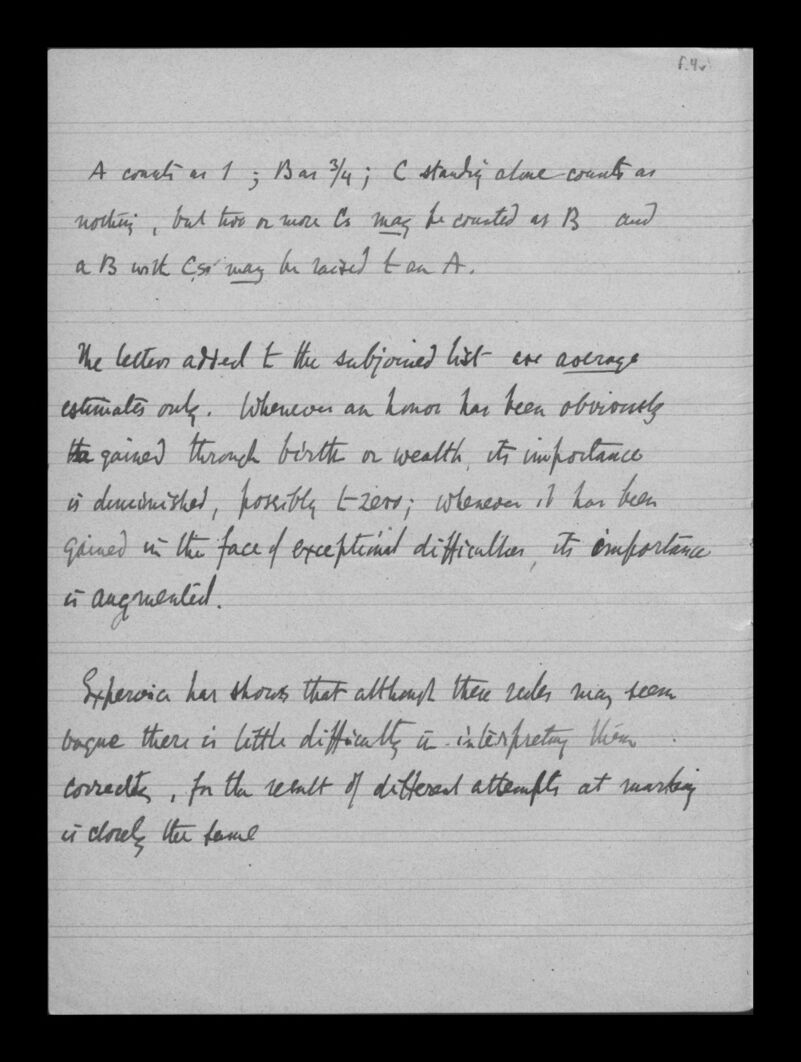 f.4v
A counts as 1 ; B as 3/4 ; C standing alone counts as
nothing, but two or more Cs may be counted as B and
a B with Cs may be raised to an A.
The letters added to the subjoined list are average
estimates only. Whenever an honor has been obviously
gained through birth or wealth, its importance
is diminished, possibly to zero; whenever it has been
gained in the face of exceptional difficulties, its importance
is augmented.
Experience has shown that although these rules may seem
vague there is little difficulty in interpreting them
correctly, for the result of different attempts at marking
is closely the same